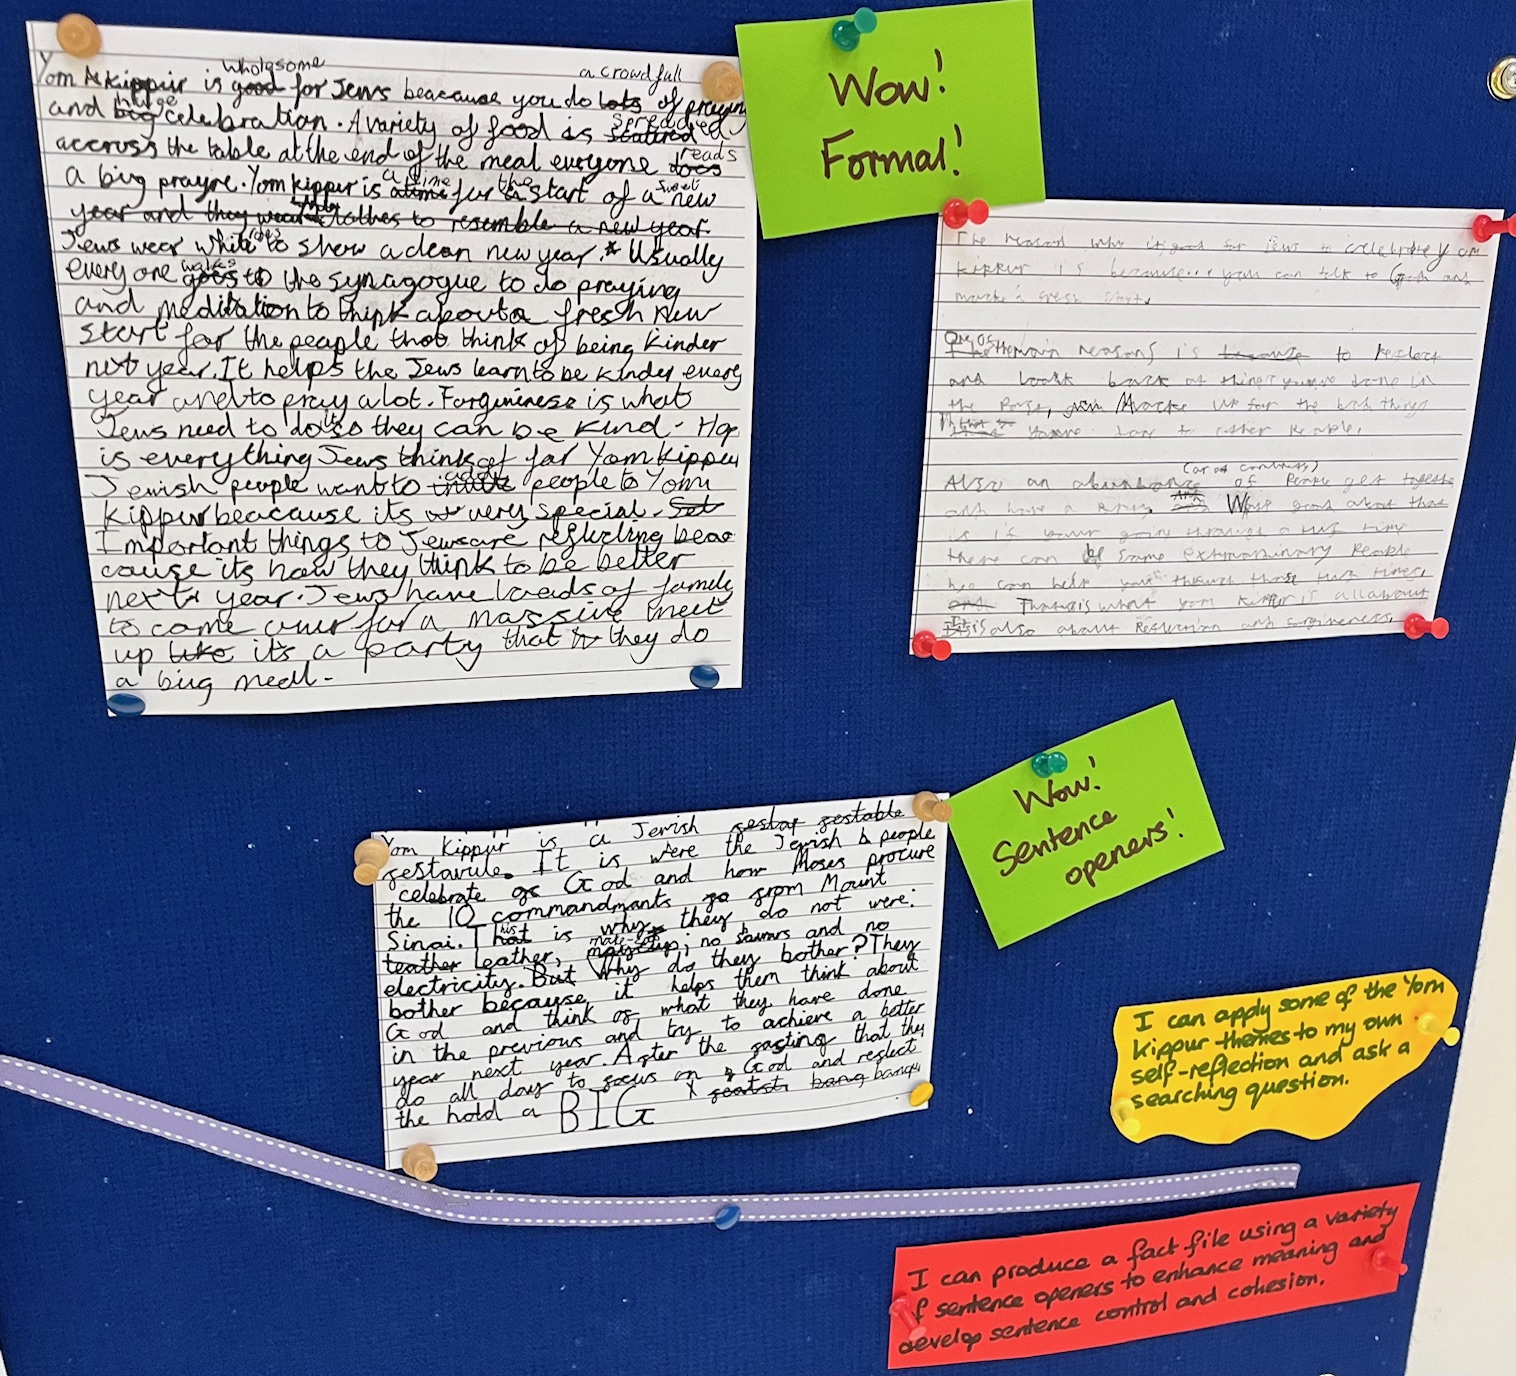 wholesome a crowdfull
Yom Kippur is good for Jews beacause you do lots of praying
huge
and big celebration. A variety of food is scatired
spreaded
accross the table at the end of the meal everyone does
reads
a big prayre. Yom kippur is atime for a start of a new
a time the sweet
year and they wear clothes to resemble a new year.
Jews wear white to show a clean new year.* Usually
robes
every one goes to the synagogue to do praying
walks
and meditation to think about a fresh new
start for the people that think of being kinder
next year. It helps the Jews learn to be kinder every
year and to pray a lot. Forgivinese is what
Jews need to do so they can be kind. Hop
it
is everything Jews think of for Yom Kippur
Jewish people want to people to Yom
kippur beacause its very special. Set
Important things to Jews are reflecting beac
cause its how they think to be better
next year. Jews have loads of famely
to come over for a massive meet
up like its a party that they do
a big meal.
Wow!
Formal!
The reason why it, good for Jews to celebrate Yom
Kippur is because... you can talk to God and
make a fresh start.
One of
The main reasons is because to reflect
and look back at things youve done in
the Past, Macke up for the bad things
youve done to other People.
(ar at contrasts)
Also an abundance of People get togethe
and have a Party, What good about that
is if your going through a tuf time
there can be some extraordinary People
hee can help you through those tuf times.
and That is what yom kippur is all about
It is also about Reflection and forgiveness.
Yom Kippur is a Jewish festaf festable
festavule. It is were the Jewish people
celebrate of God and how Moses procure
the 10 commandmants go from Mount
Sinai. That is why they do not were:
his
teather leather, make-up; no showers and no
electricity. But Why do they bother? They
bother because it helps them think about
God and think of what they have done
in the previous and try to achieve a better
year next year. After the fasting that they
do all day to focus on God and reflect
the hold a BIG feast bang banqu
Wow!
Sentence
openers!
I can apply some of the Yom
Kippur themes to my own
self-reflection and ask a
searching question.
I can produce a fact file using a variety
of sentence openers to enhance meaning and
develop sentence control and cohesion.